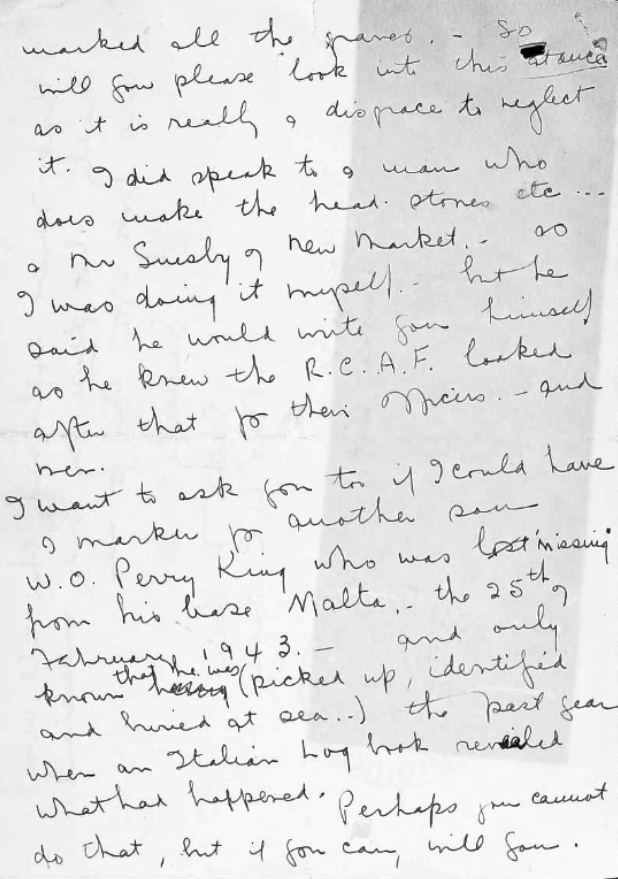 marked all the graves. - So
will you please look into this at once
as it is really a disgrace to neglect
it. I did speak to a man who
does make the head. stones etc ...
a Mr Suesby of New Market. - so
I was doing it myself. - but he
said he would write you himself
as he knew the R.C.A.F. looked
after that for their officers. - and
men.
I want to ask you too if I could have
a marker for another son
W.O. Perry King who was lost missing
from his base Malta, - the 25th of
February 1943. - and only
known that he was (picked up, identified
and buried at sea..) the past year
when an Italian Log book revealed
what had happened. Perhaps you cannot
do that, but if you can, will you.